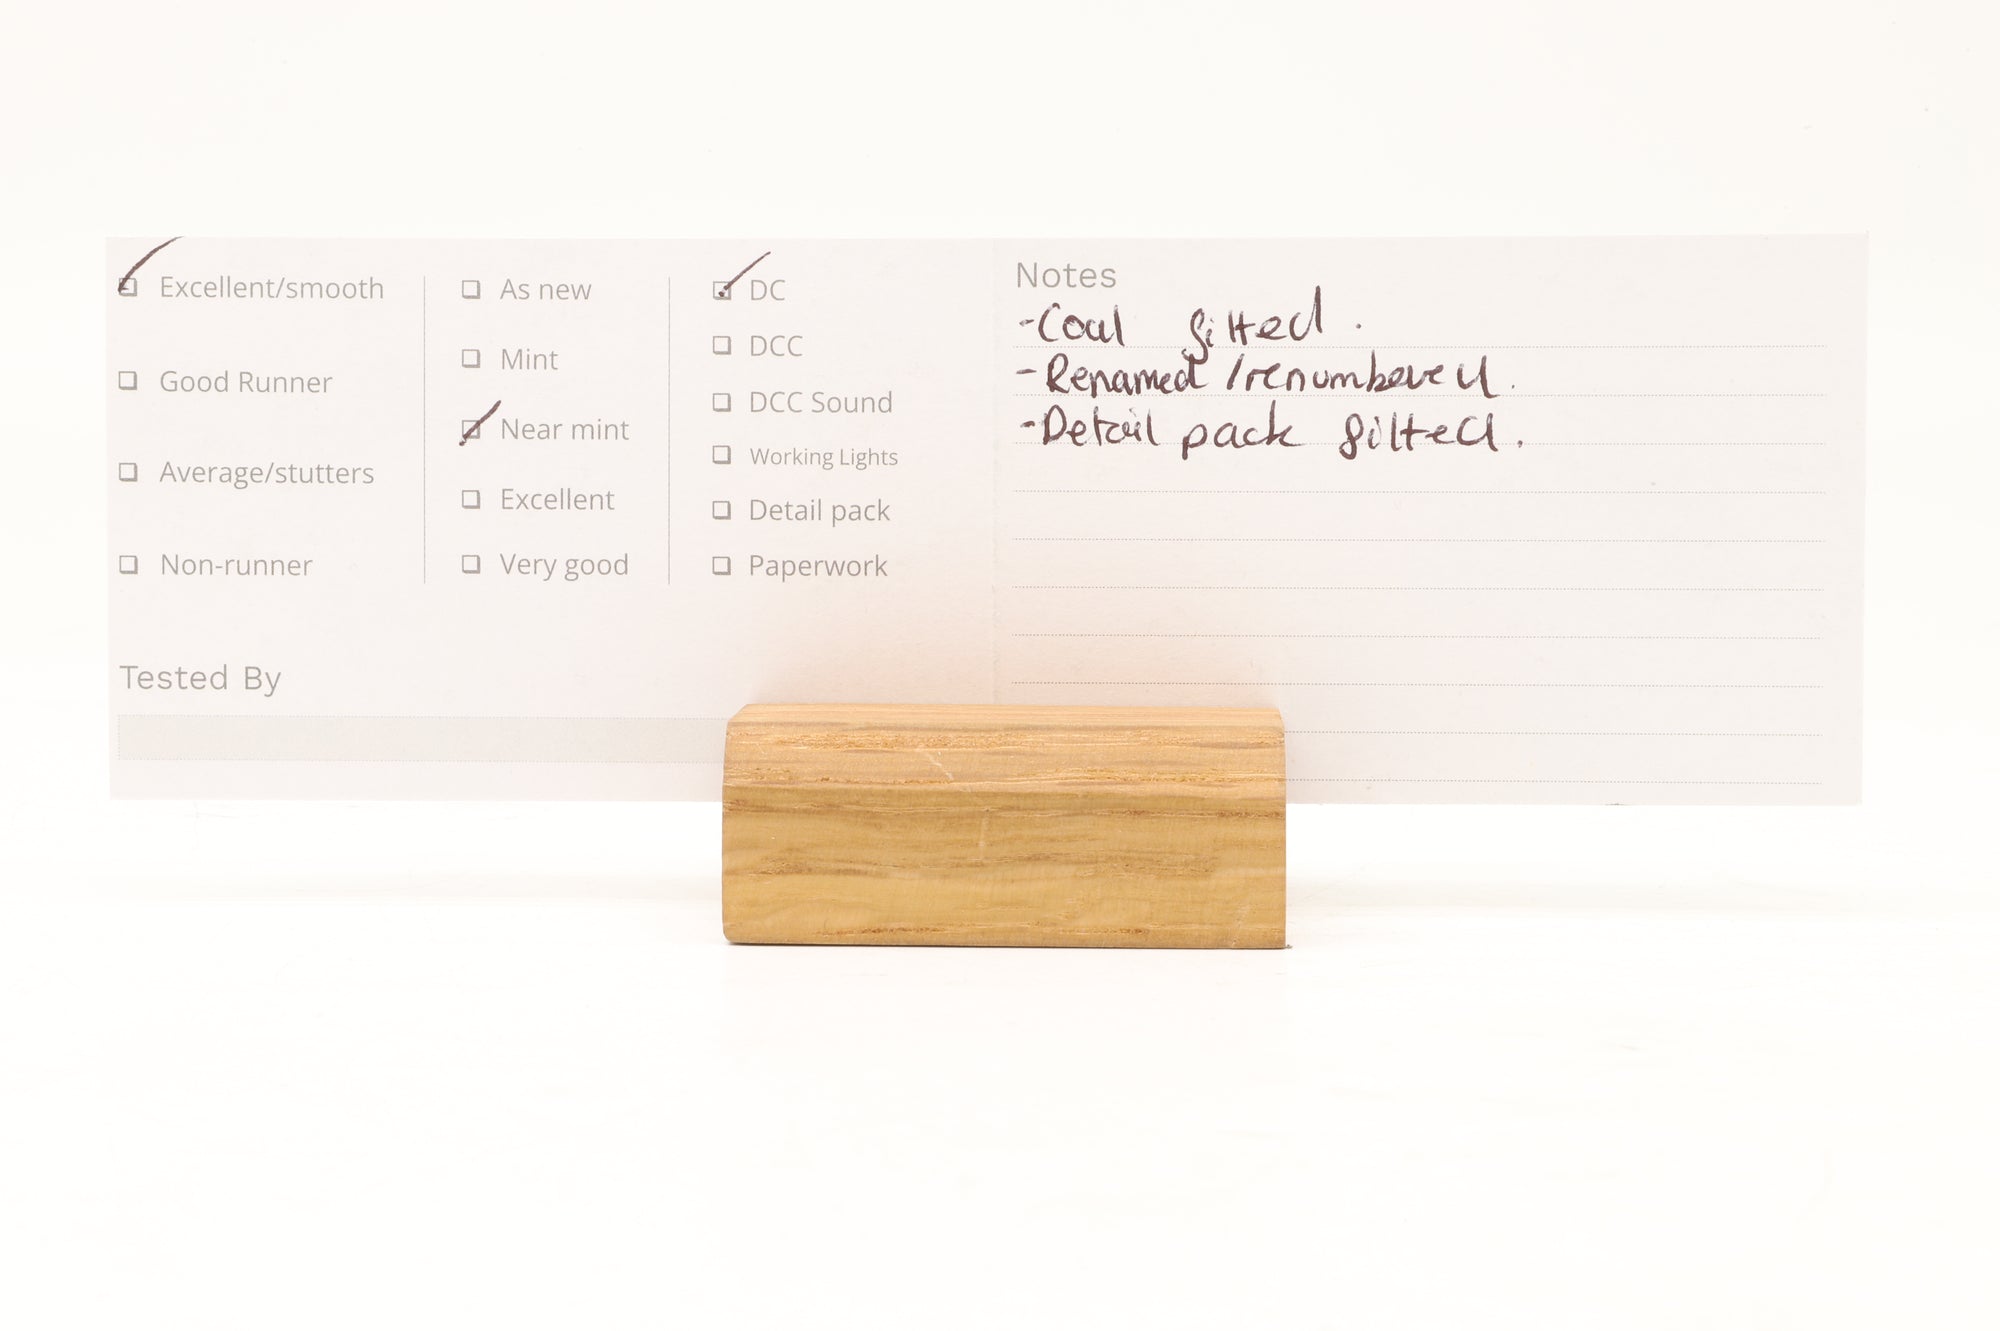 Excellent/smooth
Good Runner
Average/stutters
Non-runner
As new
Mint
Near mint
Excellent
Very good
DC
DCC
DCC Sound
Working Lights
Detail pack
Paperwork
Tested By
Notes
-Coal fitted.
-Renamed/renumbered.
-Detail pack fitted.